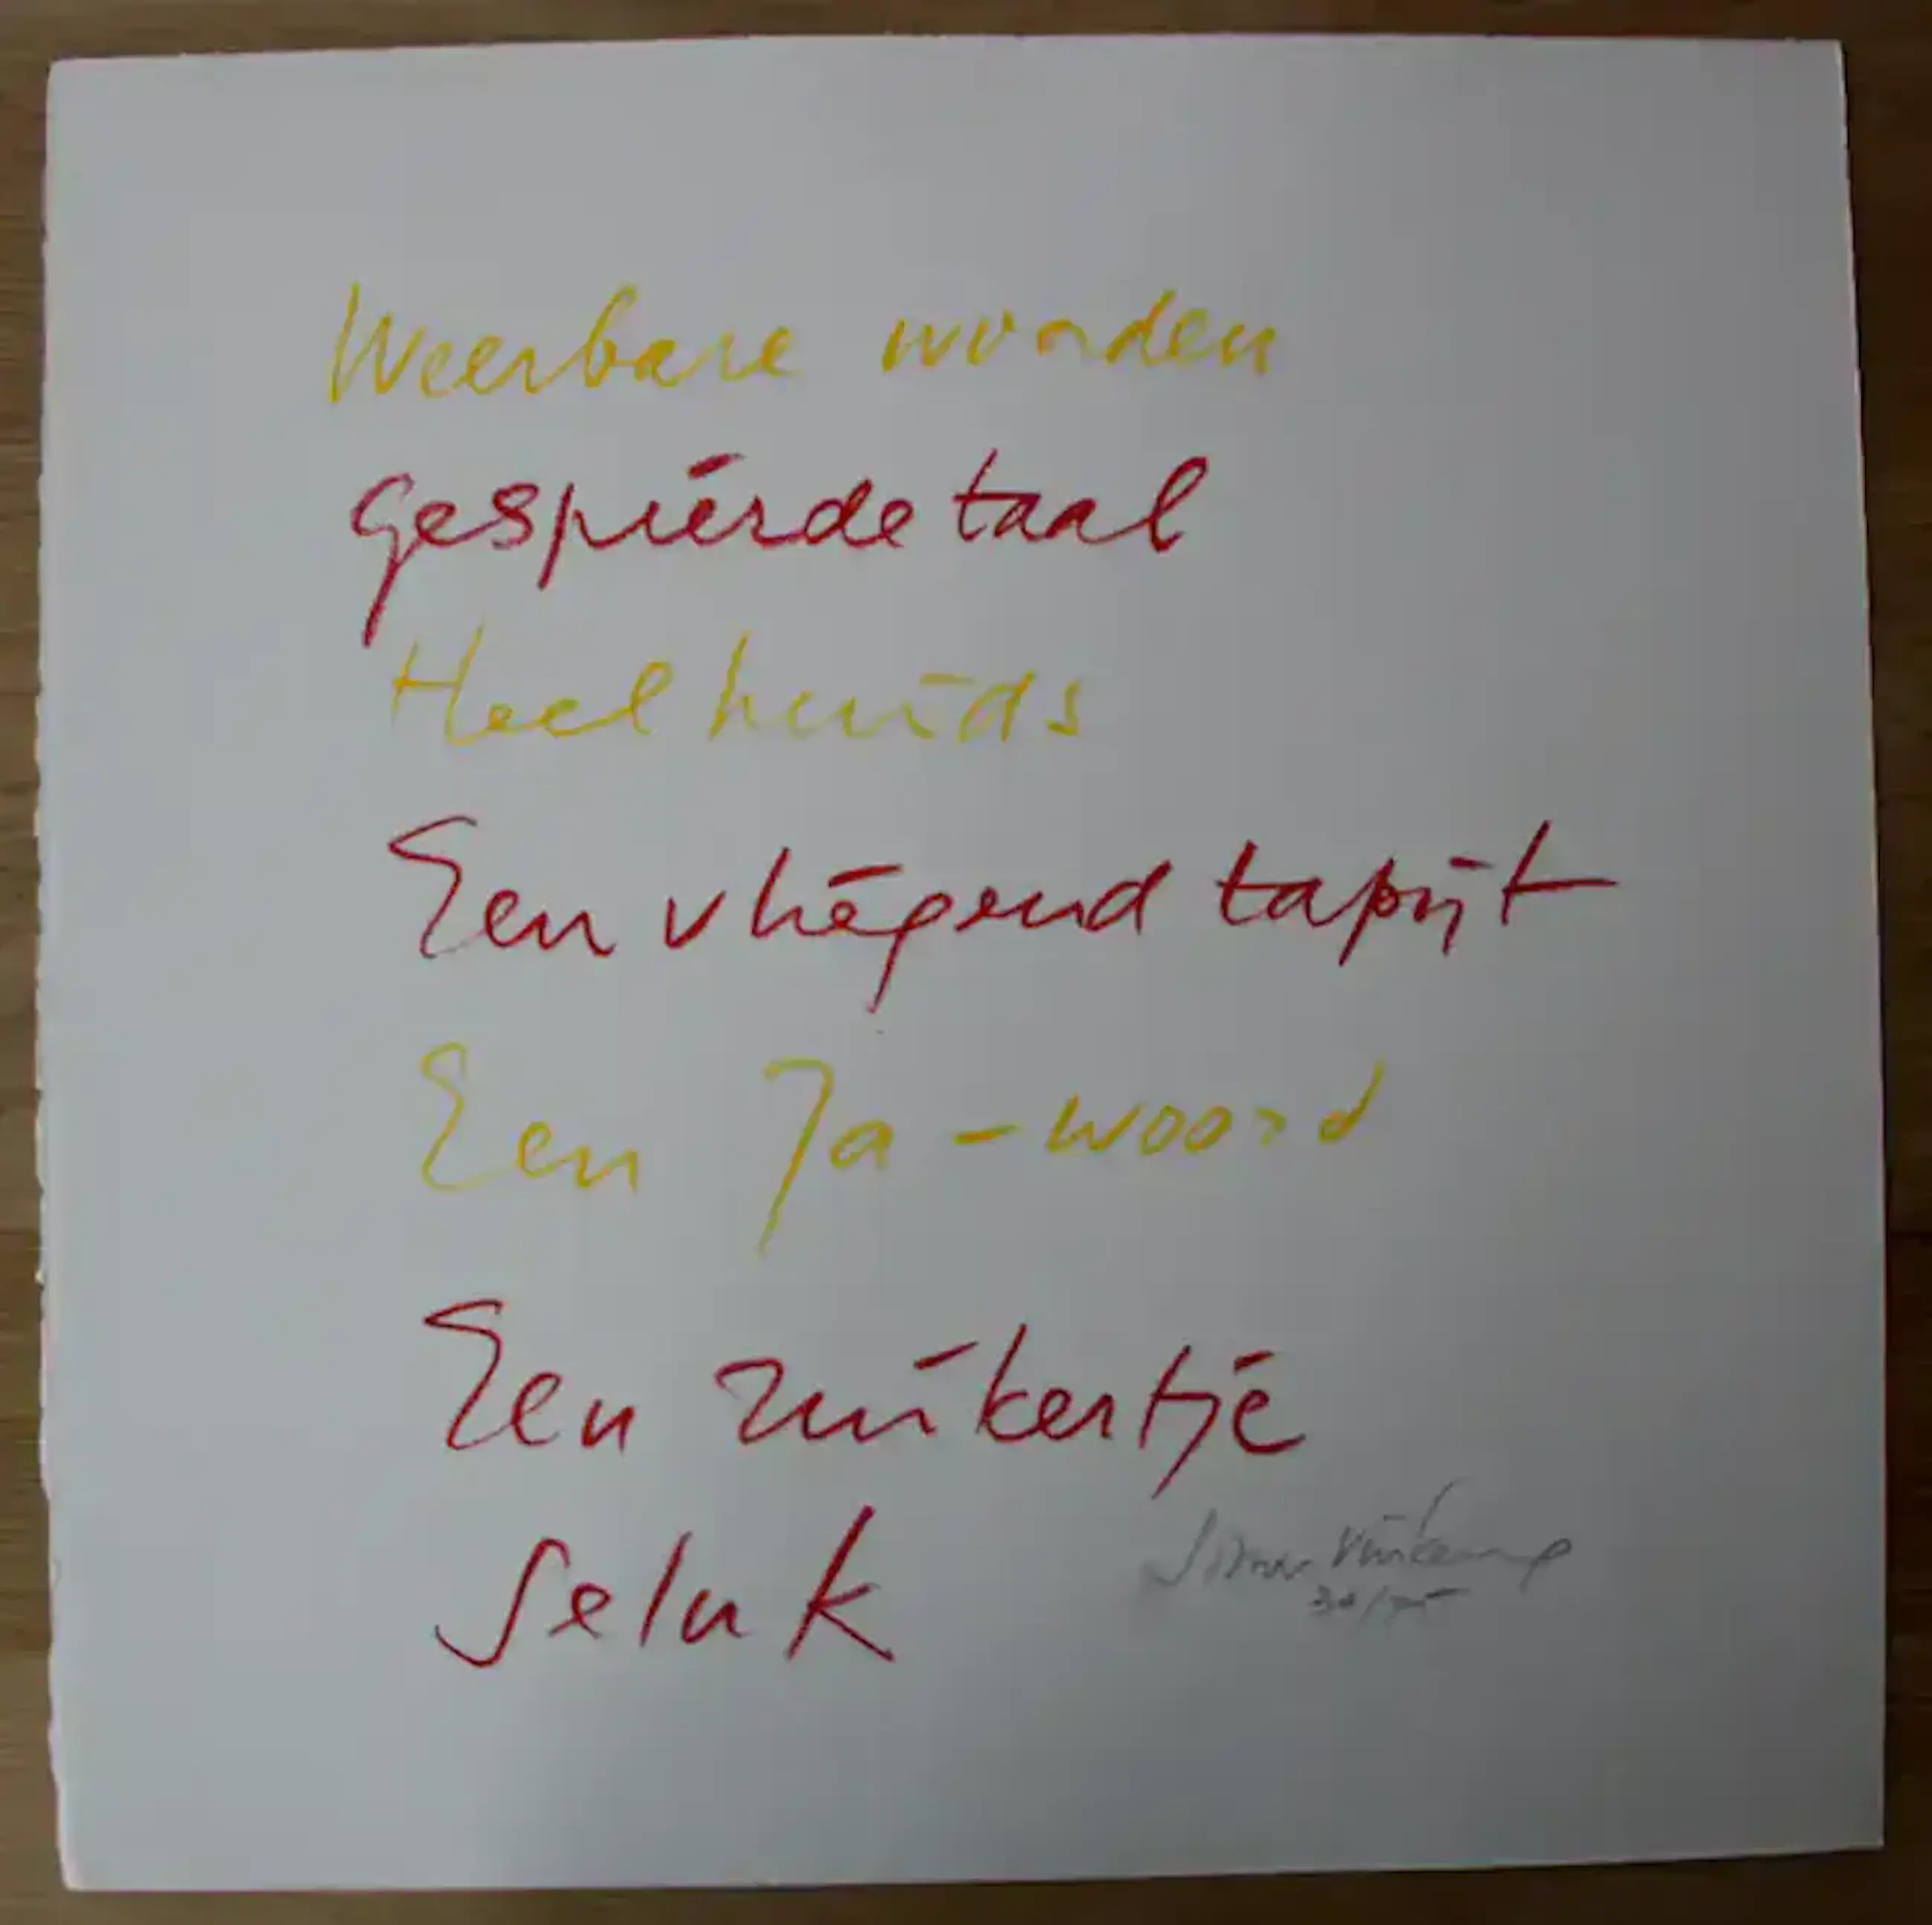 Weerbare woorden
gespierde taal
Heelhuids
Een vliegend tapijt
Een Ja-woord
Een zuikertje
geluk
Simon Vinkenoog